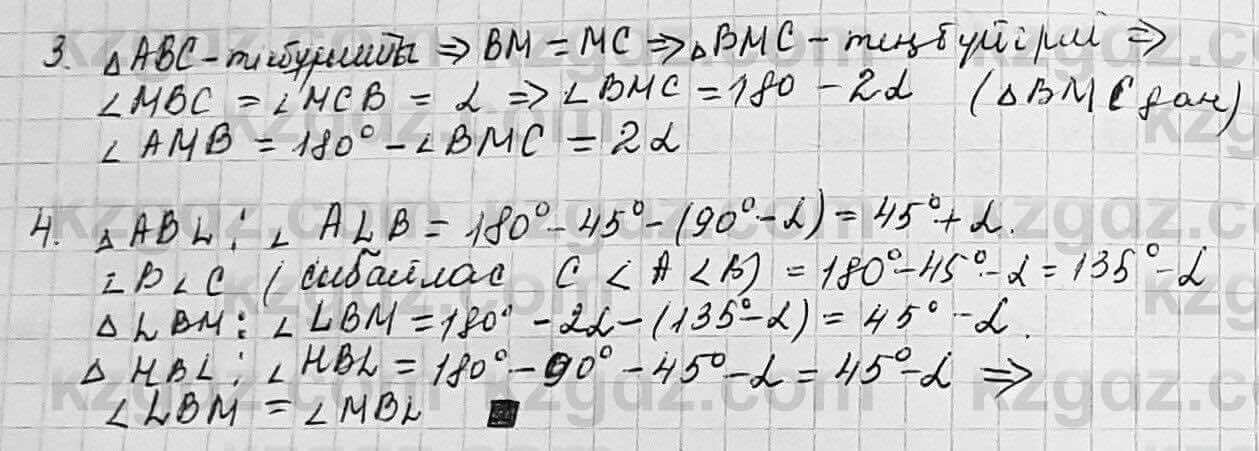 3. △ABC - тікбұрышты ⇒ BM = MC ⇒ △BMC - теңбүйірлі ⇒
∠MBC = ∠MCB = α ⇒ ∠BMC = 180 - 2α (△BMC дан)
∠AMB = 180° - ∠BMC = 2α
4. △ABL: ∠ALB = 180° - 45° - (90° - α) = 45° + α.
∠B∠C (сыбайлас C < A < B) = 180° - 45° - α = 135° - α
△LBM: ∠LBM = 180° - 2α - (135° - α) = 45° - α.
△HBL: ∠HBL = 180° - 90° - 45° - α = 45° - α ⇒
∠LBM = ∠MBL